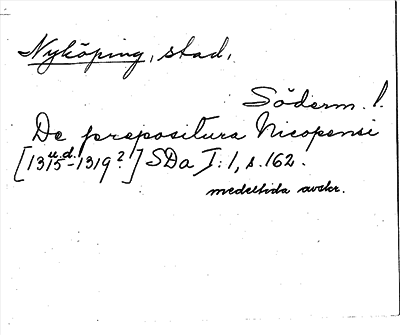 Nyköping, stad,
Söderm. l.
De prepositura Nicopensi
u.d.
[1315-1319?] SDa I:1, s. 162.
medeltida avskr.